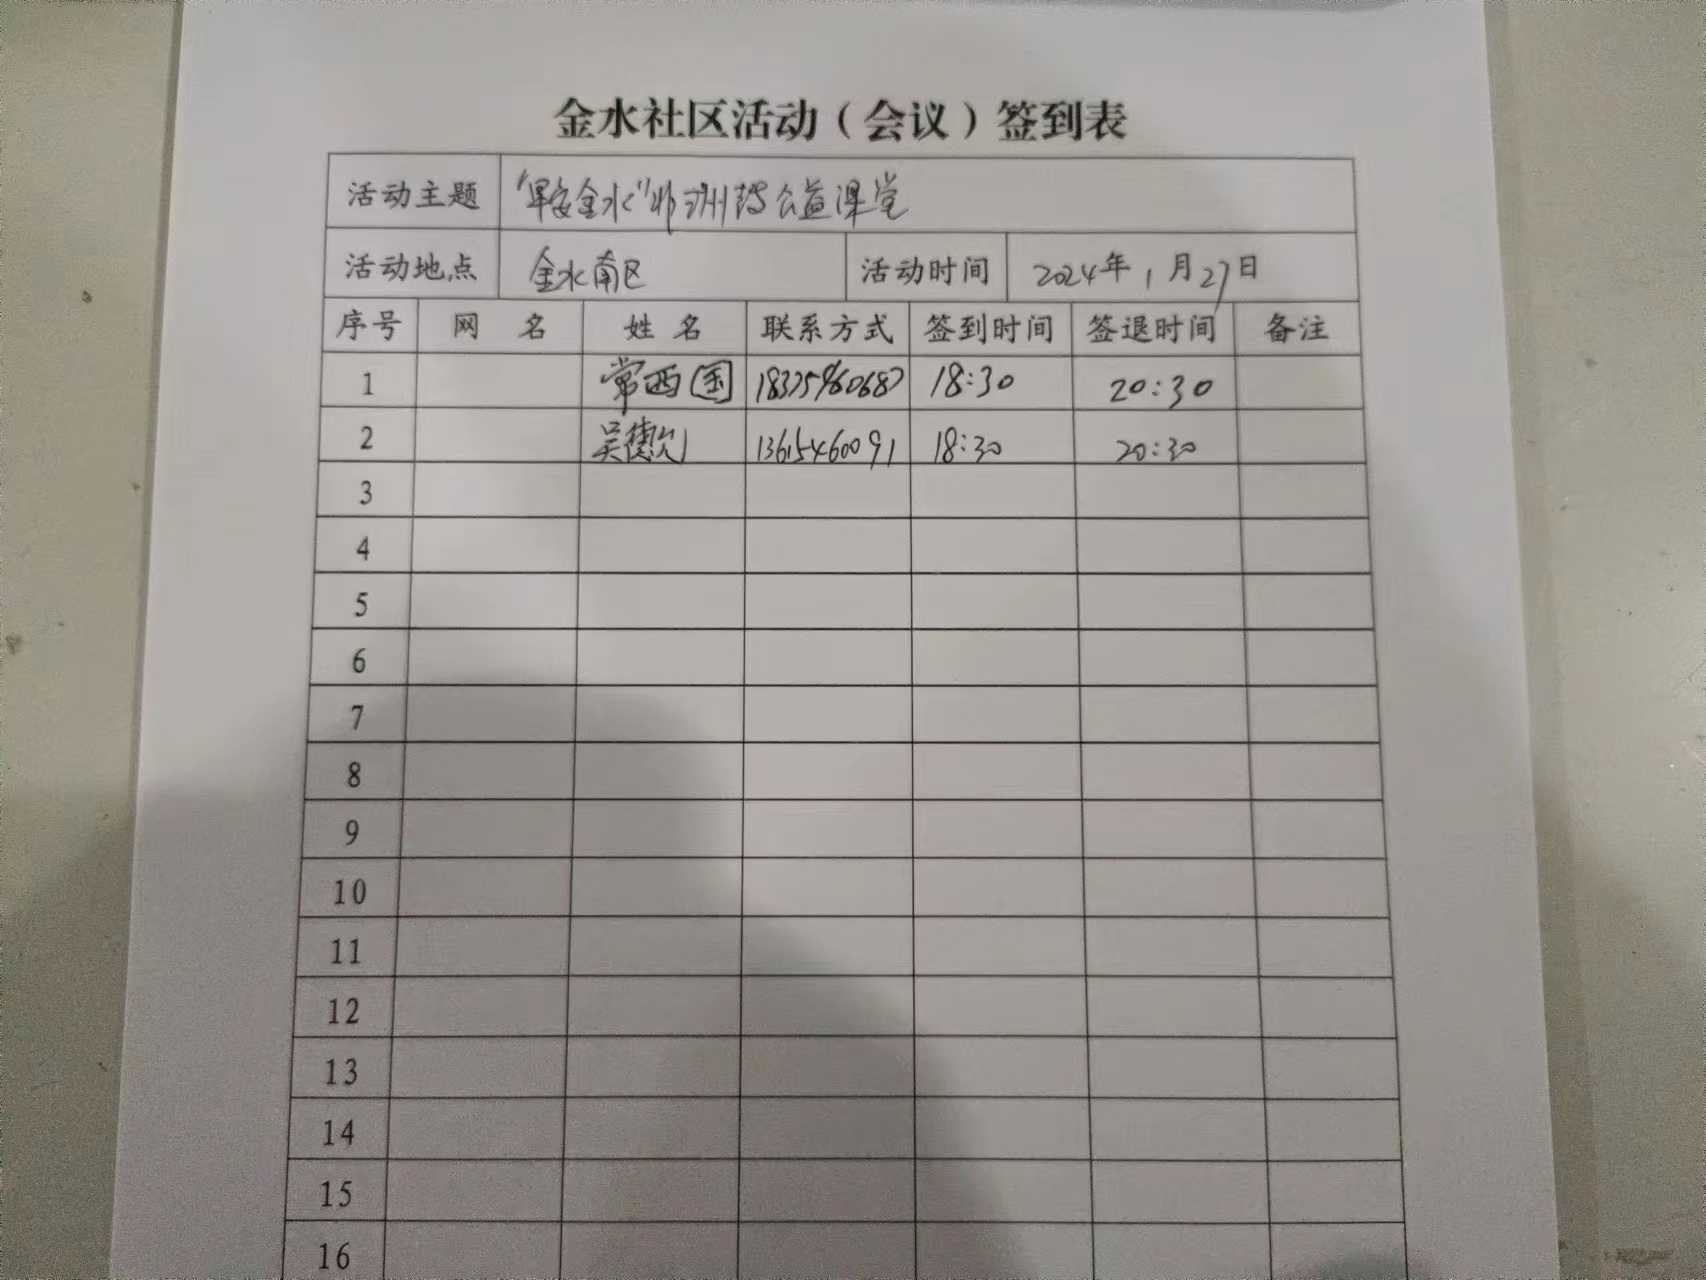 金水社区活动（会议）签到表
活动主题 "早安金水"非洲鼓公益课堂
活动地点 金水南区 活动时间 2024年1月27日
序号 网名 姓名 联系方式 签到时间 签退时间 备注
1 常西国 18:30 20:30
2 13615460091 18:30 20:30
3
4
5
6
7
8
9
10
11
12
13
14
15
16